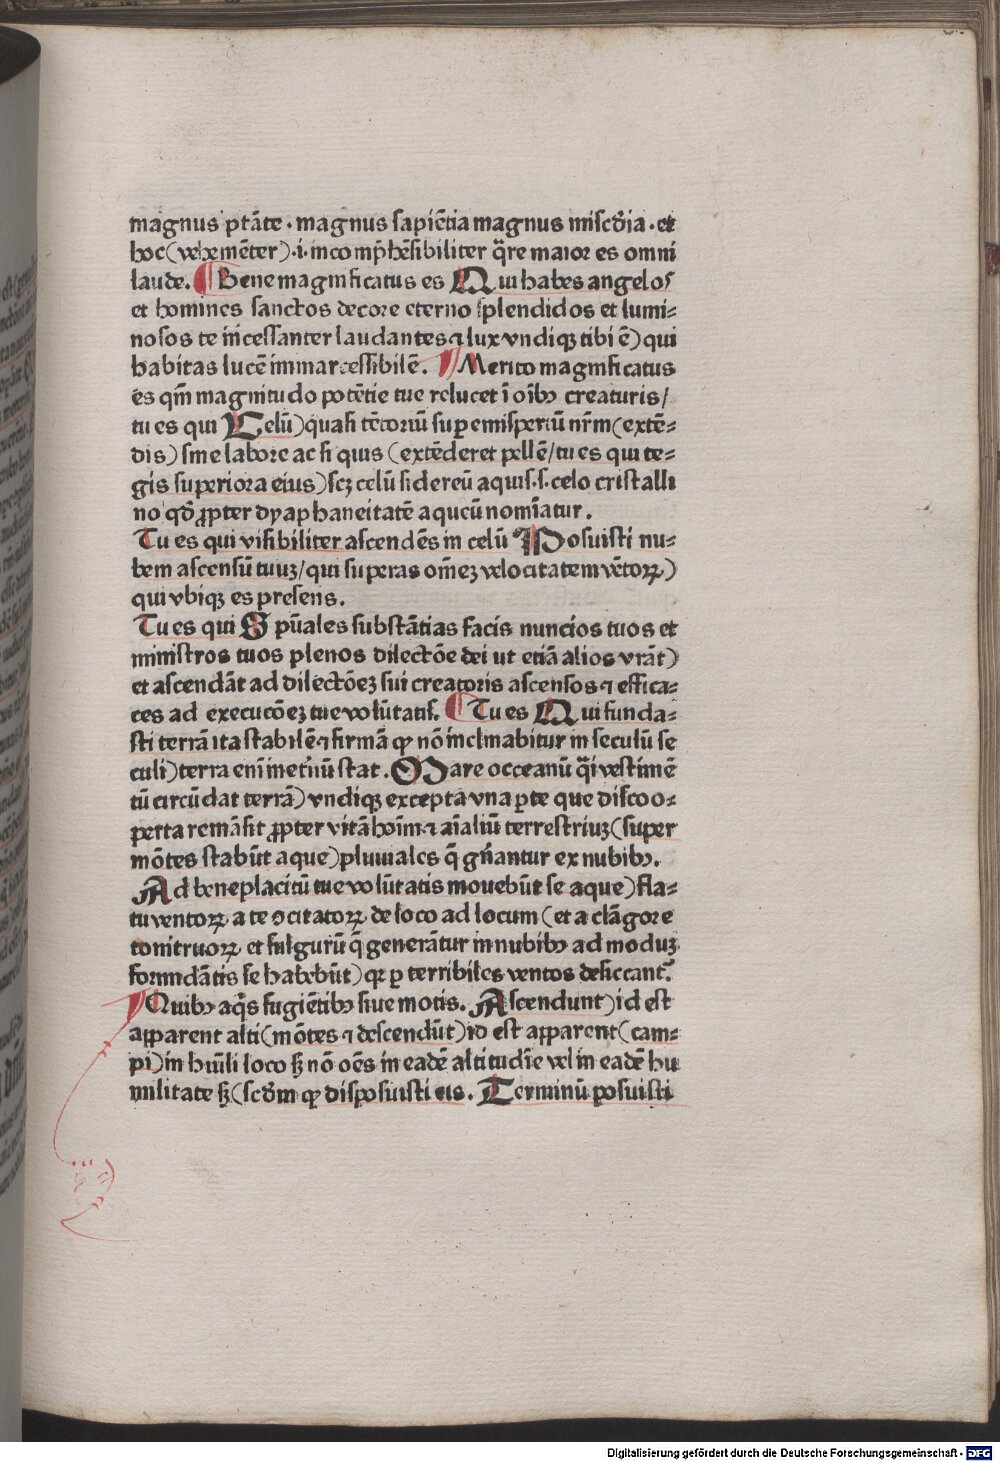 magnus ptāte · magnus sapiētia magnus misc̄dia · et
hoc (vehemēter) ·i· incomp̄hēsibiliter q̄re maior es omni
laude. ¶ Bene magnificatus es Qui habes angelos
et homines sanctos decore eterno splendidos et lumi=
nosos te incessanter laudantes ⁊ lux vndiqꝫ tibi ē) qui
habitas lucē immarcessibilē. ¶ Merito magnificatus
es qm̄ magnitudo potētie tue relucet ī oībꝰ creaturis/
tu es qui Celū) quasi tētoriū suꝑ emisperiū nr̄m (extē=
dis) sine labore ac si quis (extēderet pellē/ tu es qui te=
gis superiora eius) scꝫ celū sidereū aquis ·s· celo cristalli
no qd̄ ꝓpter dyaphaneitatē aqueū nomīatur.
Tu es qui visibiliter ascendēs in celū Posuisti nu=
bem ascensū tuuꝫ/ qui superas om̄eꝫ velocitatem vētoꝝ)
qui vbiqꝫ es presens.
Tu es qui Spūales substātias facis nuncios tuos et
ministros tuos plenos dilectōe dei ut etiā alios vrāt)
et ascendāt ad dilectōeꝫ sui creatoris ascensos ⁊ effica=
ces ad execucōeꝫ tue volūtatis. ¶ Tu es Qui funda=
sti terrā ita stabilē ⁊ firmā ꝙ nō inclinabitur in seculū se
culi) terra enī inet̄nū stat. Mare occeanū q̄i vestimē
tū circūdat terrā) vndiqꝫ excepta vna ꝑte que discoo=
perta remāsit ꝓpter vitā hoīm ⁊ aīaliū terrestriuꝫ (super
mōtes stabūt aque) pluuiales q̄ gn̄antur ex nubibꝰ.
Ad beneplacitū tue volūtatis mouebūt se aque) fla=
tu ventoꝝ a te ꝯcitatoꝝ de loco ad locum (et a clāgore
tonitruoꝝ et fulgurū q̄ generātur in nubibꝰ ad moduꝫ
formidātis se habebūt) qꝛ ꝑ terribiles ventos desiccant᷑.
¶ Quibꝰ aq̄s fugiētibꝰ siue motis. Ascendunt) id est
apparent alti (mōtes ⁊ descendūt) id est apparent (cam=
pi) in hūili loco sꝫ nō oēs in eadē altitudīe vel in eadē hu
militate sꝫ (scd̄m ꝙ disposuisti eis. Terminū posuisti
Digitalisierung gefördert durch die Deutsche Forschungsgemeinschaft - DFG